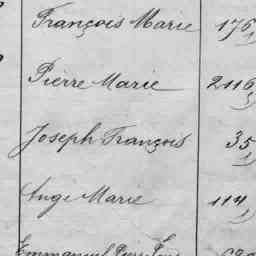 François Marie 176
1
Pierre Marie 2116
Joseph François 35
1
Ange Marie 114
1
Emmanuel